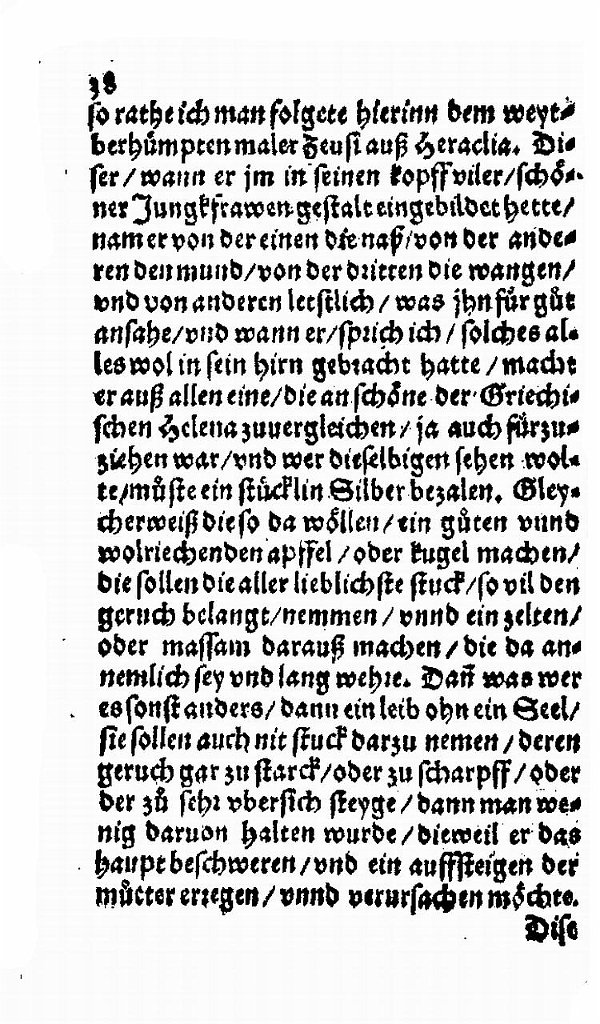 38
so rathe ich man folgete hierinn dem weyt⸗
berhümpten maler Zeusi auß Heraclia. Di⸗
ser / wann er jm in seinen kopff viler / schö⸗
ner Jungkfrawen gestalt eingebildet hette /
nam er von der einen die naß / von der ande⸗
ren den mund / von der dritten die wangen /
vnd von anderen letstlich / was jhn für gůt
ansahe / vnd wann er / sprich ich / solches al⸗
les wol in sein hirn gebracht hatte / macht
er auß allen eine / die an schöne der Griechi⸗
schen Helena zuuergleichen / ja auch fürzu⸗
ziehen war / vnd wer dieselbigen sehen wol⸗
te / můste ein stücklin Silber bezalen. Gley⸗
cherweiß die so da wöllen / ein gůten vnnd
wolriechenden apffel / oder kugel machen /
die sollen die aller lieblichste stuck / so vil den
geruch belangt / nemmen / vnnd ein zelten /
oder massam darauß machen / die da an⸗
nemlich sey vnd lang wehre. Dañ was wer
es sonst anders / dann ein leib ohn ein Seel /
sie sollen auch nit stuck darzu nemen / deren
geruch gar zu starck / oder zu scharpff / oder
der zů sehr vbersich steyge / dann man we⸗
nig daruon halten wurde / dieweil er das
haupt beschweren / vnd ein auffsteigen der
můtter erregen / vnnd verursachen möchte.
Dise